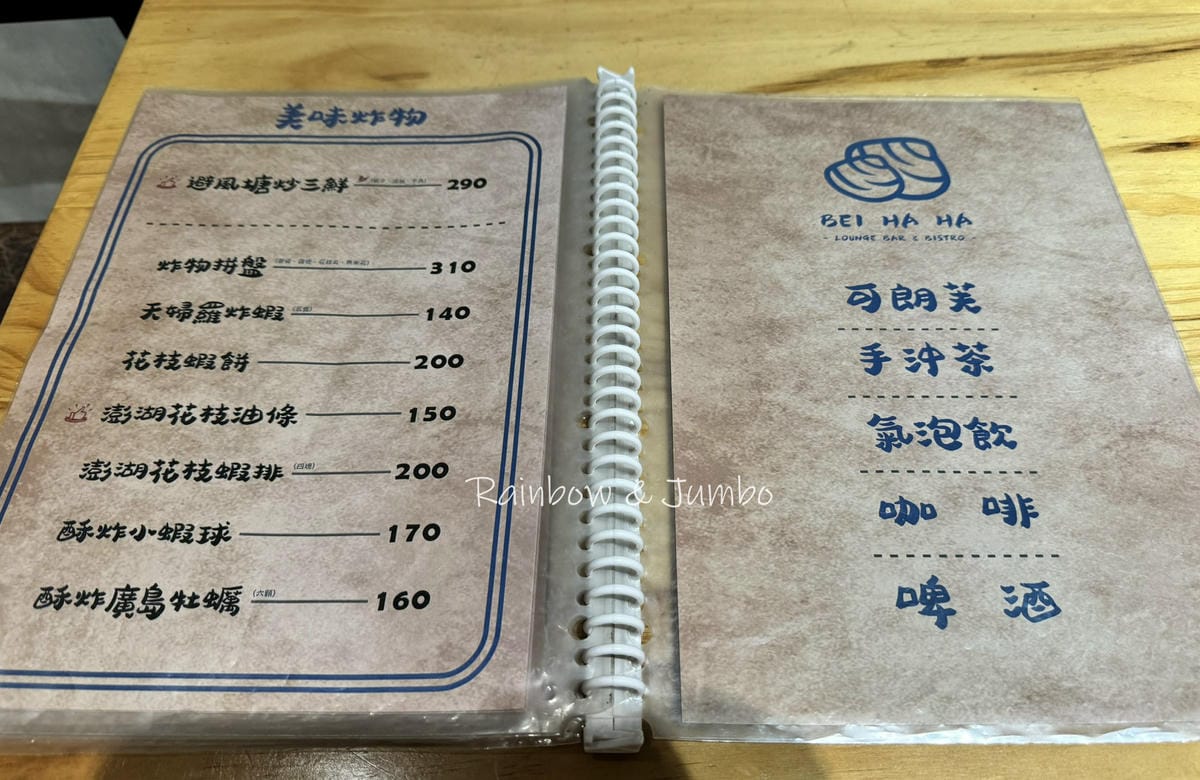 美味炸物
避風塘炒三鮮 290
炸物拼盤 310
天婦羅炸蝦 140
花枝蝦餅 200
澎湖花枝油條 150
澎湖花枝蝦排 (四塊) 200
酥炸小蝦球 170
酥炸廣島牡蠣 (六顆) 160
BEI HA HA
- LOUNGE BAR & BISTRO -
可朗芙
手沖茶
氣泡飲
咖啡
啤酒
Rainbow & Jumbo